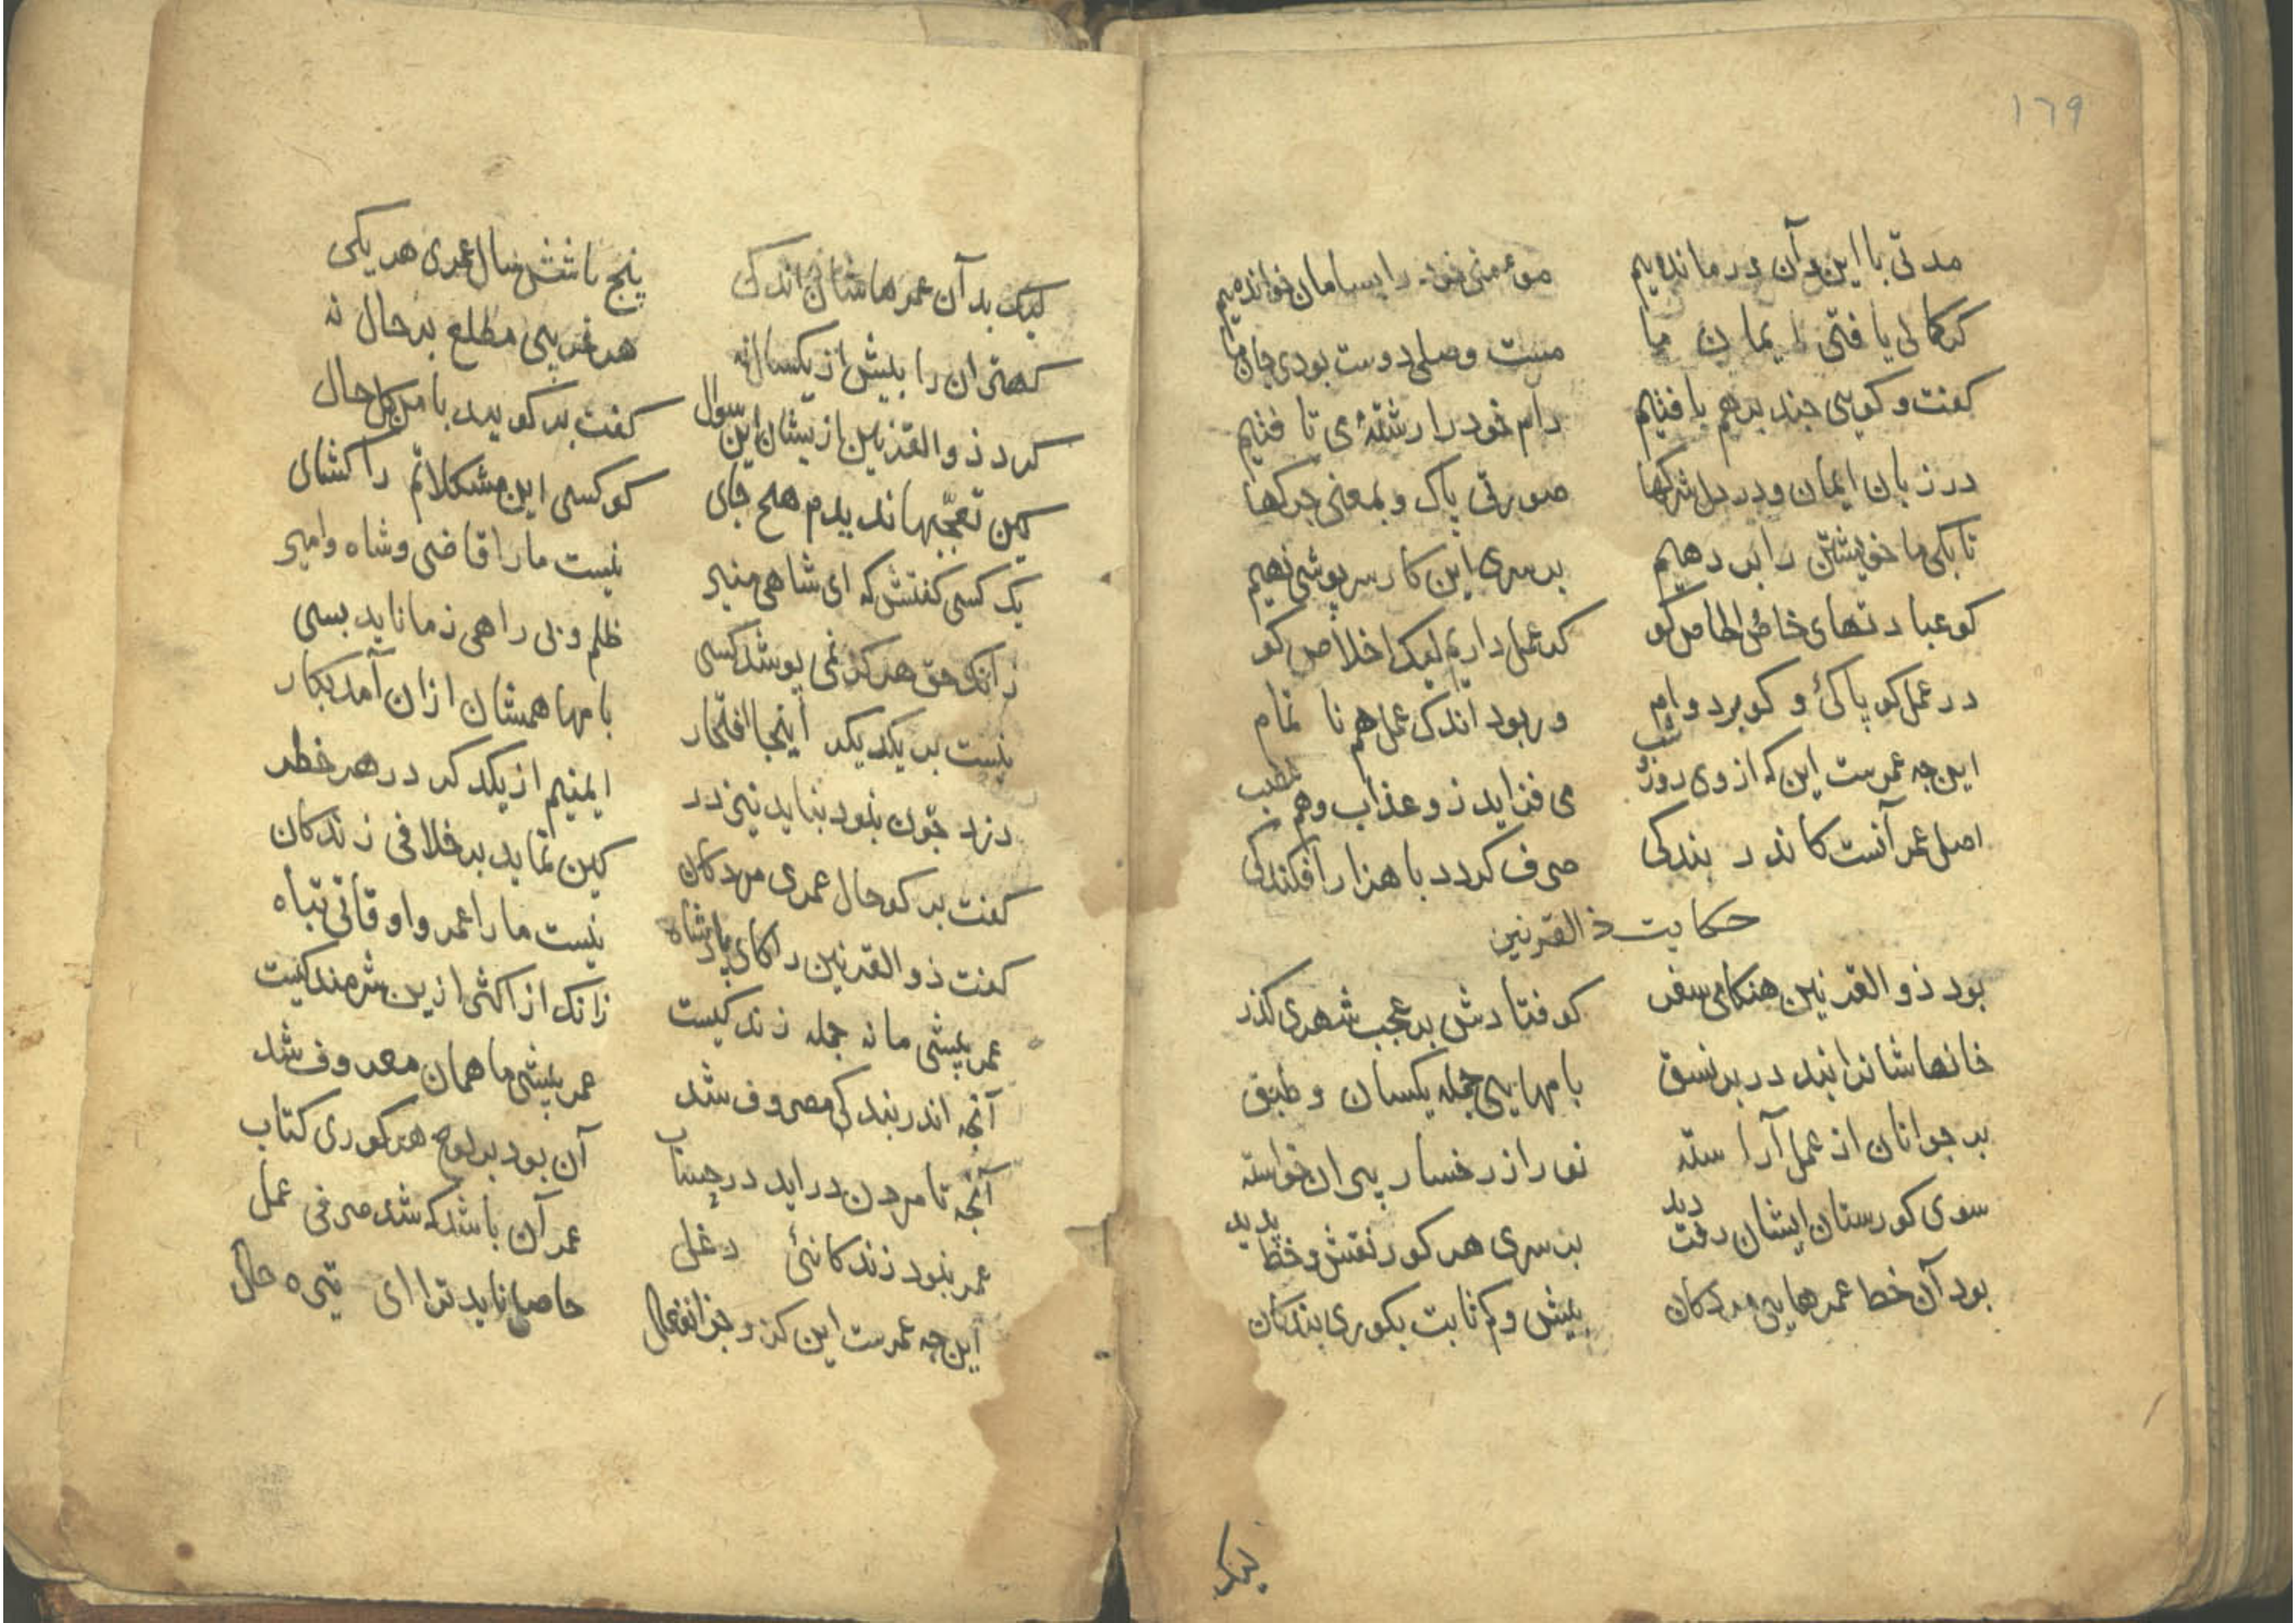 ١٦٩
مدتی با این و آن درماندیم مومنی خود را بسامان خواندیم
گر کمالی یافتی ایمان ما مست وصلی دوست بودی جان ما
کفت و کویی چند برهم بافتیم دام خود را رشتهٔ می تافتیم
در زبان ایمان و در دل شرکها صورتی پاک و بمعنی چرکها
تا بکی ما خویشتن را بر دهیم بر سری این کار سرپوشی نهیم
کو عبادتهای خاص الخاص کو کر عمل داریم لیک اخلاص کو
در عمل کو پاکئ و کو بر دوام ور بود اندک عمل هم نا تمام
این چه عمرست این که از وی روز و شب می فزاید زو عذاب و هم
اصل عمر آنست کاندر بندکی صرف کردد با هزار افکندکی
حکایت ذالقرنین
بود ذوالقرنین هنکامی سفر کو فتادش بر عجب شهری کذر
خانهاشانرا بدر بر نسق بامهایی جمله یکسان و طبق
بر جوانان از عمل آراسته نور از رخسار پیران خواسته
سوی کورستان ایشان رفت دید بر سری هر کور نقش و خط پدید
بود آن خط عمرهایی مردکان بیش و کم ثابت بکوری بندکان
لیک
لیک بد آن عمرهاشان اندکی پنج یا شش سال عمری هر یکی
کهتران را بیش از یکسال نه هر غریبی مطلع بر حال نه
کرد ذوالقرنین ازیشان این سوال کفت بر کویید با من کل حال
کین تعجبها ندیدم هیچ جای کو کسی این مشکلاتم را کشای
یک کسی کفتش که ای شاهی منیر نیست ما را قاضی و شاه و امیر
زانک حق هرکز نمی پوشد کسی ظلم و بی راهی ز ما ناید بسی
نیست بر یکدیکر اینجا افتخار بامها همشان ازان آمد بکار
دزد چون نبود نباید نیز در ایمنیم از یکدکر در هر خطر
کفت بر کو حال عمری مردکان کین نماید بر خلافی زندکان
کفت ذوالقرنین را کای پادشاه نیست ما را عمر و اوقاتی تباه
عمر پیشی ما نه جمله زندکیست زانک از اکثر ازین شرمندکیست
آنچه اندر بندکی مصروف شد عمر پیشی ما همان معروف شد
آنچه تا مردن دراید در حساب آن بود بر لوح هر کوری کتاب
عمر نبود زندکانئ دغلی عمر آن باشد که شد صرفی عمل
این چه عمرست این کزو جز انفعال حاصل ناید ترا ای تیره حال